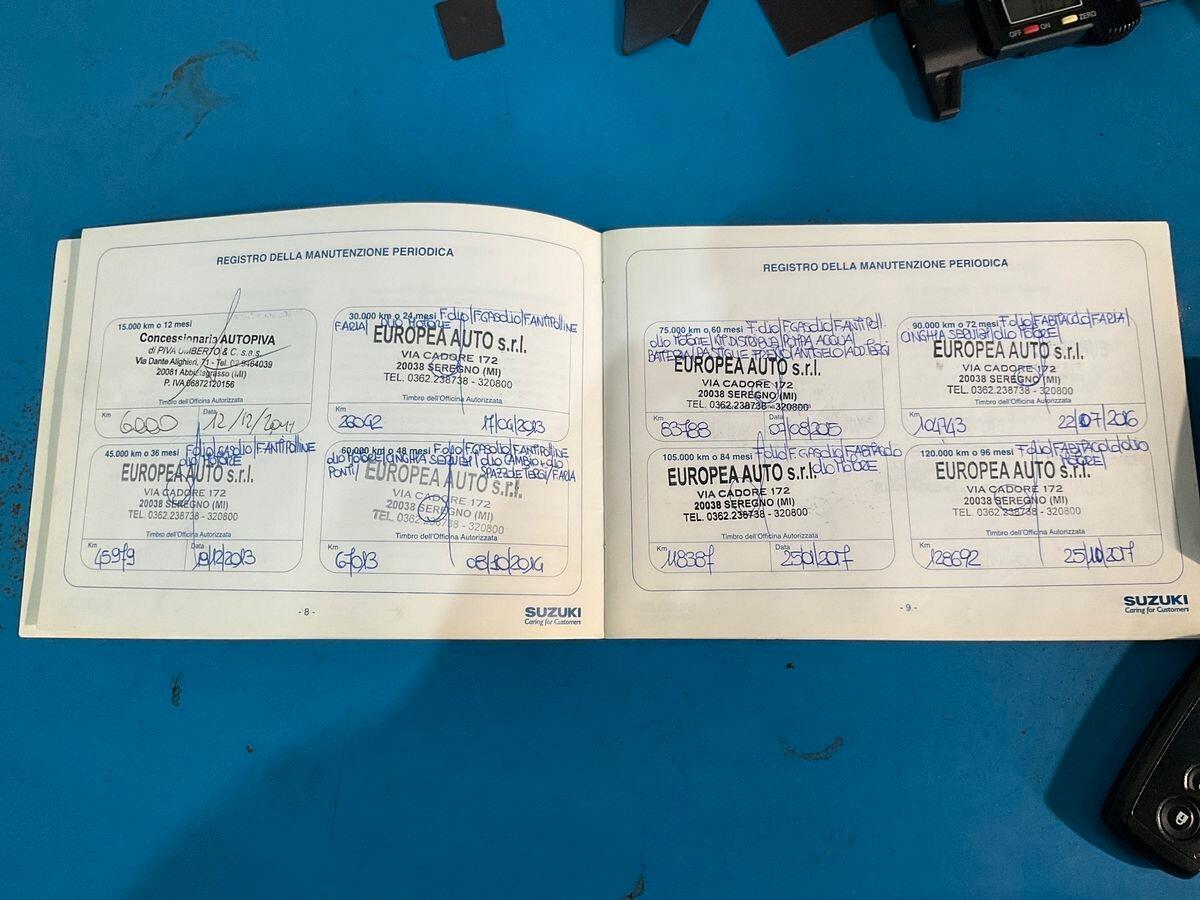 OFF
ON
ZERO
REGISTRO DELLA MANUTENZIONE PERIODICA
15.000 km o 12 mesi
Concessionaria AUTOPIVA
di PIVA UMBERTO & C. s.a.s.
Via Dante Alighieri, 71 - Tel. 02 9464039
20081 Abbiategrasso (MI)
P. IVA 06872120156
Timbro dell'Officina Autorizzata
Km
Data
6000
12/12/2011
30.000 km o 24 mesi F.olio/F.GASOLIO/F.ANTIPOLLINE
F.ARIA/ OLIO MOTORE
EUROPEA AUTO s.r.l.
VIA CADORE 172
20038 SEREGNO (MI)
TEL. 0362.238738 - 320800
Timbro dell'Officina Autorizzata
Km
28042
17/04/2013
45.000 km o 36 mesi F.olio/GASOLIO/F.ANTIPOLLINE
OLIO MOTORE
EUROPEA AUTO s.r.l.
VIA CADORE 172
20038 SEREGNO (MI)
TEL. 0362.238738 - 320800
Timbro dell'Officina Autorizzata
Km
Data
45979
19/12/2013
60.000 km o 48 mesi F.olio/F.GASOLIO/F.ANTIPOLLINE
OLIO MOTORE/CINGHIA SERVIZI/ OLIO CAMBIO + OLIO
PONTI/ SPAZZOLE TERGI/F.ARIA
EUROPEA AUTO s.r.l.
VIA CADORE 172
20038 SEREGNO (MI)
TEL. 0362.238738 - 320800
Timbro dell'Officina Autorizzata
Km
67013
08/10/2014
- 8 -
SUZUKI
Caring for Customers
REGISTRO DELLA MANUTENZIONE PERIODICA
75.000 km o 60 mesi F.olio/F.GASOLIO/F.ANTIPOLL.
OLIO MOTORE/KIT DISTRIBUZ/POMPA ACQUA
BATTERIA/PASTIGLIE FRENO/ANTIGELO/ADD.TERGI
EUROPEA AUTO s.r.l.
VIA CADORE 172
20038 SEREGNO (MI)
TEL. 0362.238738 - 320800
Timbro dell'Officina Autorizzata
Km
Data
83788
/08/2015
90.000 km o 72 mesi F.olio/F.ABITACOLO/F.ARIA/
CINGHIA SERVIZI/OLIO MOTORE/
EUROPEA AUTO s.r.l.
VIA CADORE 172
20038 SEREGNO (MI)
TEL. 0362.238738 - 320800
Timbro dell'Officina Autorizzata
Km
104743
22/07/2016
105.000 km o 84 mesi F.olio/F.GASOLIO/F.ABITACOLO
OLIO MOTORE
EUROPEA AUTO s.r.l.
VIA CADORE 172
20038 SEREGNO (MI)
TEL. 0362.238738 - 320800
Timbro dell'Officina Autorizzata
Km
Data
118387
25/01/2017
120.000 km o 96 mesi F.olio/F.ABITACOLO/OLIO
MOTORE/
EUROPEA AUTO s.r.l.
VIA CADORE 172
20038 SEREGNO (MI)
TEL. 0362.238738 - 320800
Timbro dell'Officina Autorizzata
Km
128692
25/10/2017
- 9 -
SUZUKI
Caring for Customers